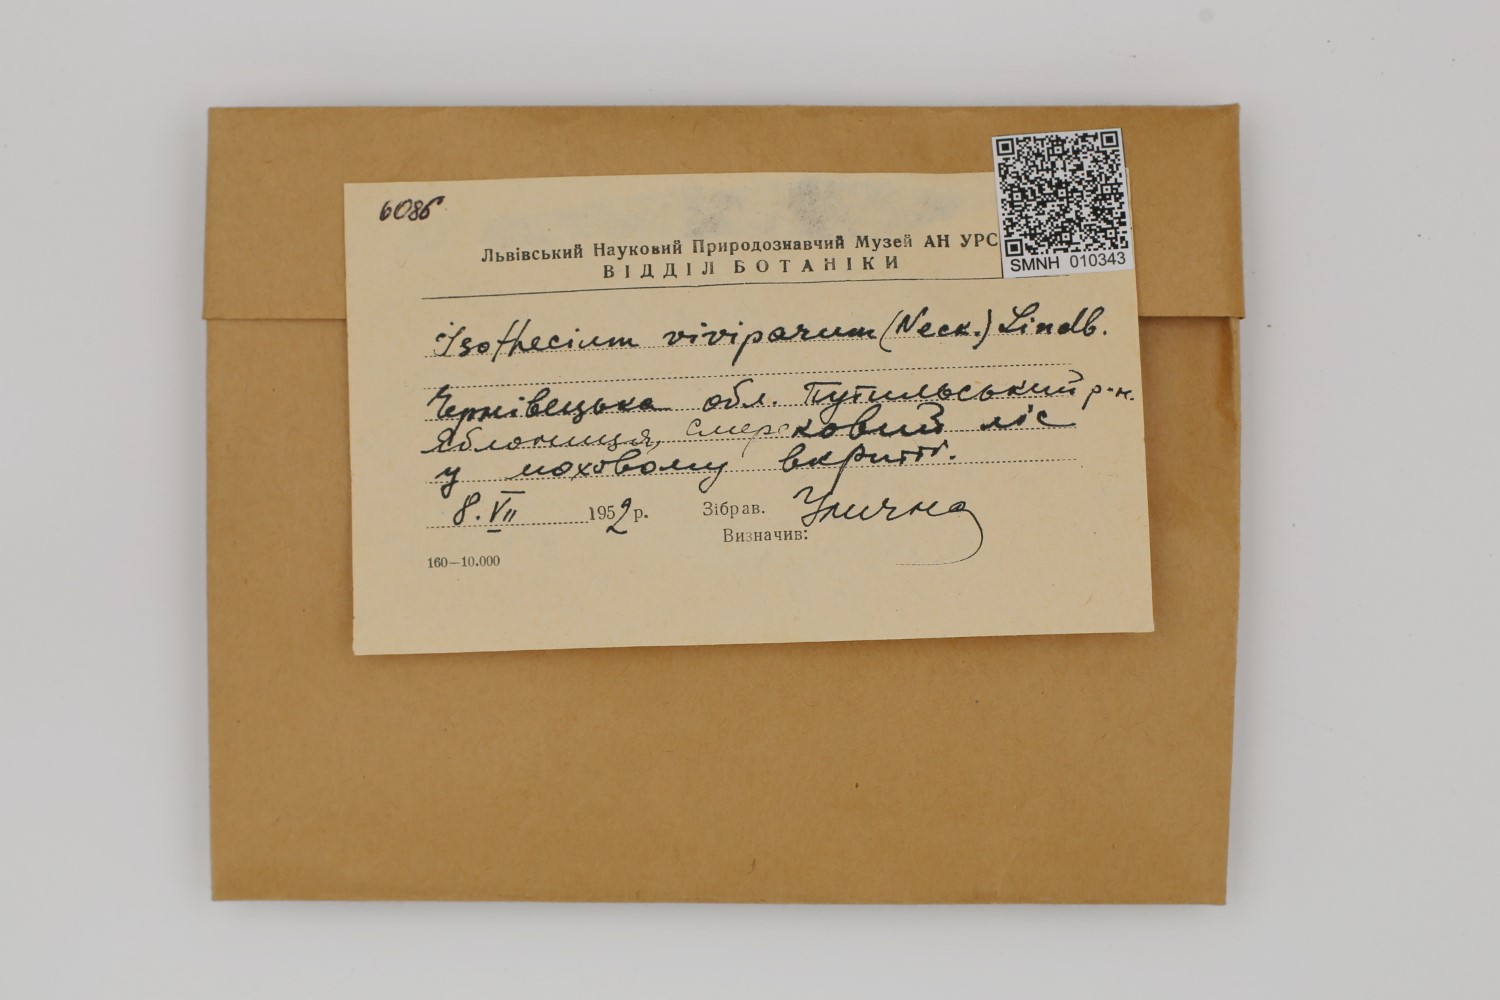 6086
Львівський Науковий Природознавчий Музей АН УРС
ВІДДІЛ БОТАНІКИ
SMNH 010343
Isothecium viviparum (Neck.) Lindb.
Чернівецька обл. Путильський р-н.
Яблониця, смерековий ліс
у моховому вкритті.
8. VII 1952 р. Зібрав. Улична
Визначив:
160—10.000